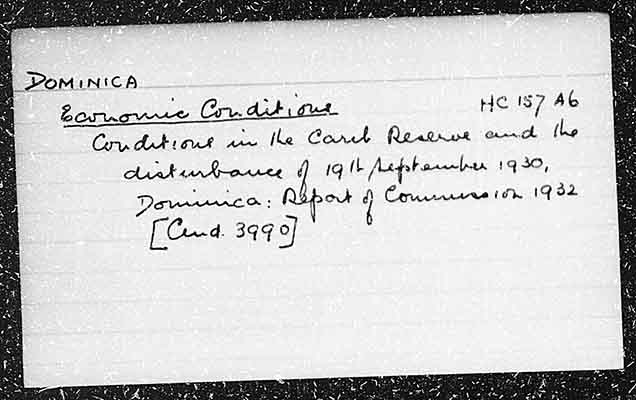 DOMINICA
Economic Conditions HC 157 A6
Conditions in the Carib Reserve and the
disturbance of 19th September 1930,
Dominica: Report of Commission 1932
[Cmd. 3990]